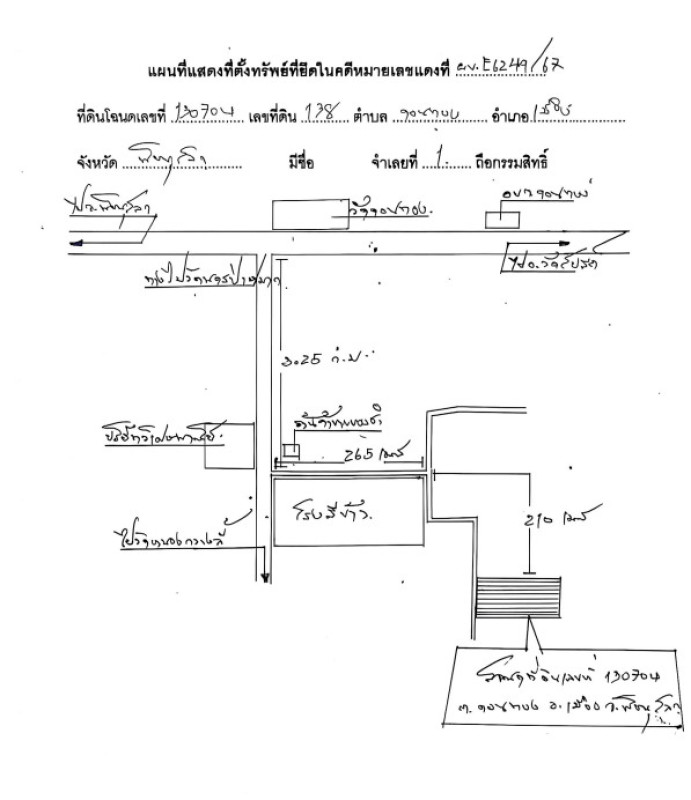 แผนที่แสดงที่ตั้งทรัพย์ที่ยึดในคดีหมายเลขแดงที่ ผบ.E6249/67
ที่ดินโฉนดเลขที่ 130704 เลขที่ดิน 138 ตำบล ดอนทอง อำเภอ เมือง
จังหวัด พิษณุโลก มีชื่อ จำเลยที่ 1 ถือกรรมสิทธิ์
ไปจ.พิษณุโลก
วัดดอนทอง
อบต.ดอนทอง
ทางไปวัดนครป่าหมาก
ไปอ.วัดโบสถ์
3.25 ก.ม.
ร้านค้าขายของชำ
265 เมตร
โรงสีข้าว
210 เมตร
โฉนดที่ดินเลขที่ 130704
ต.ดอนทอง อ.เมือง จ.พิษณุโลก